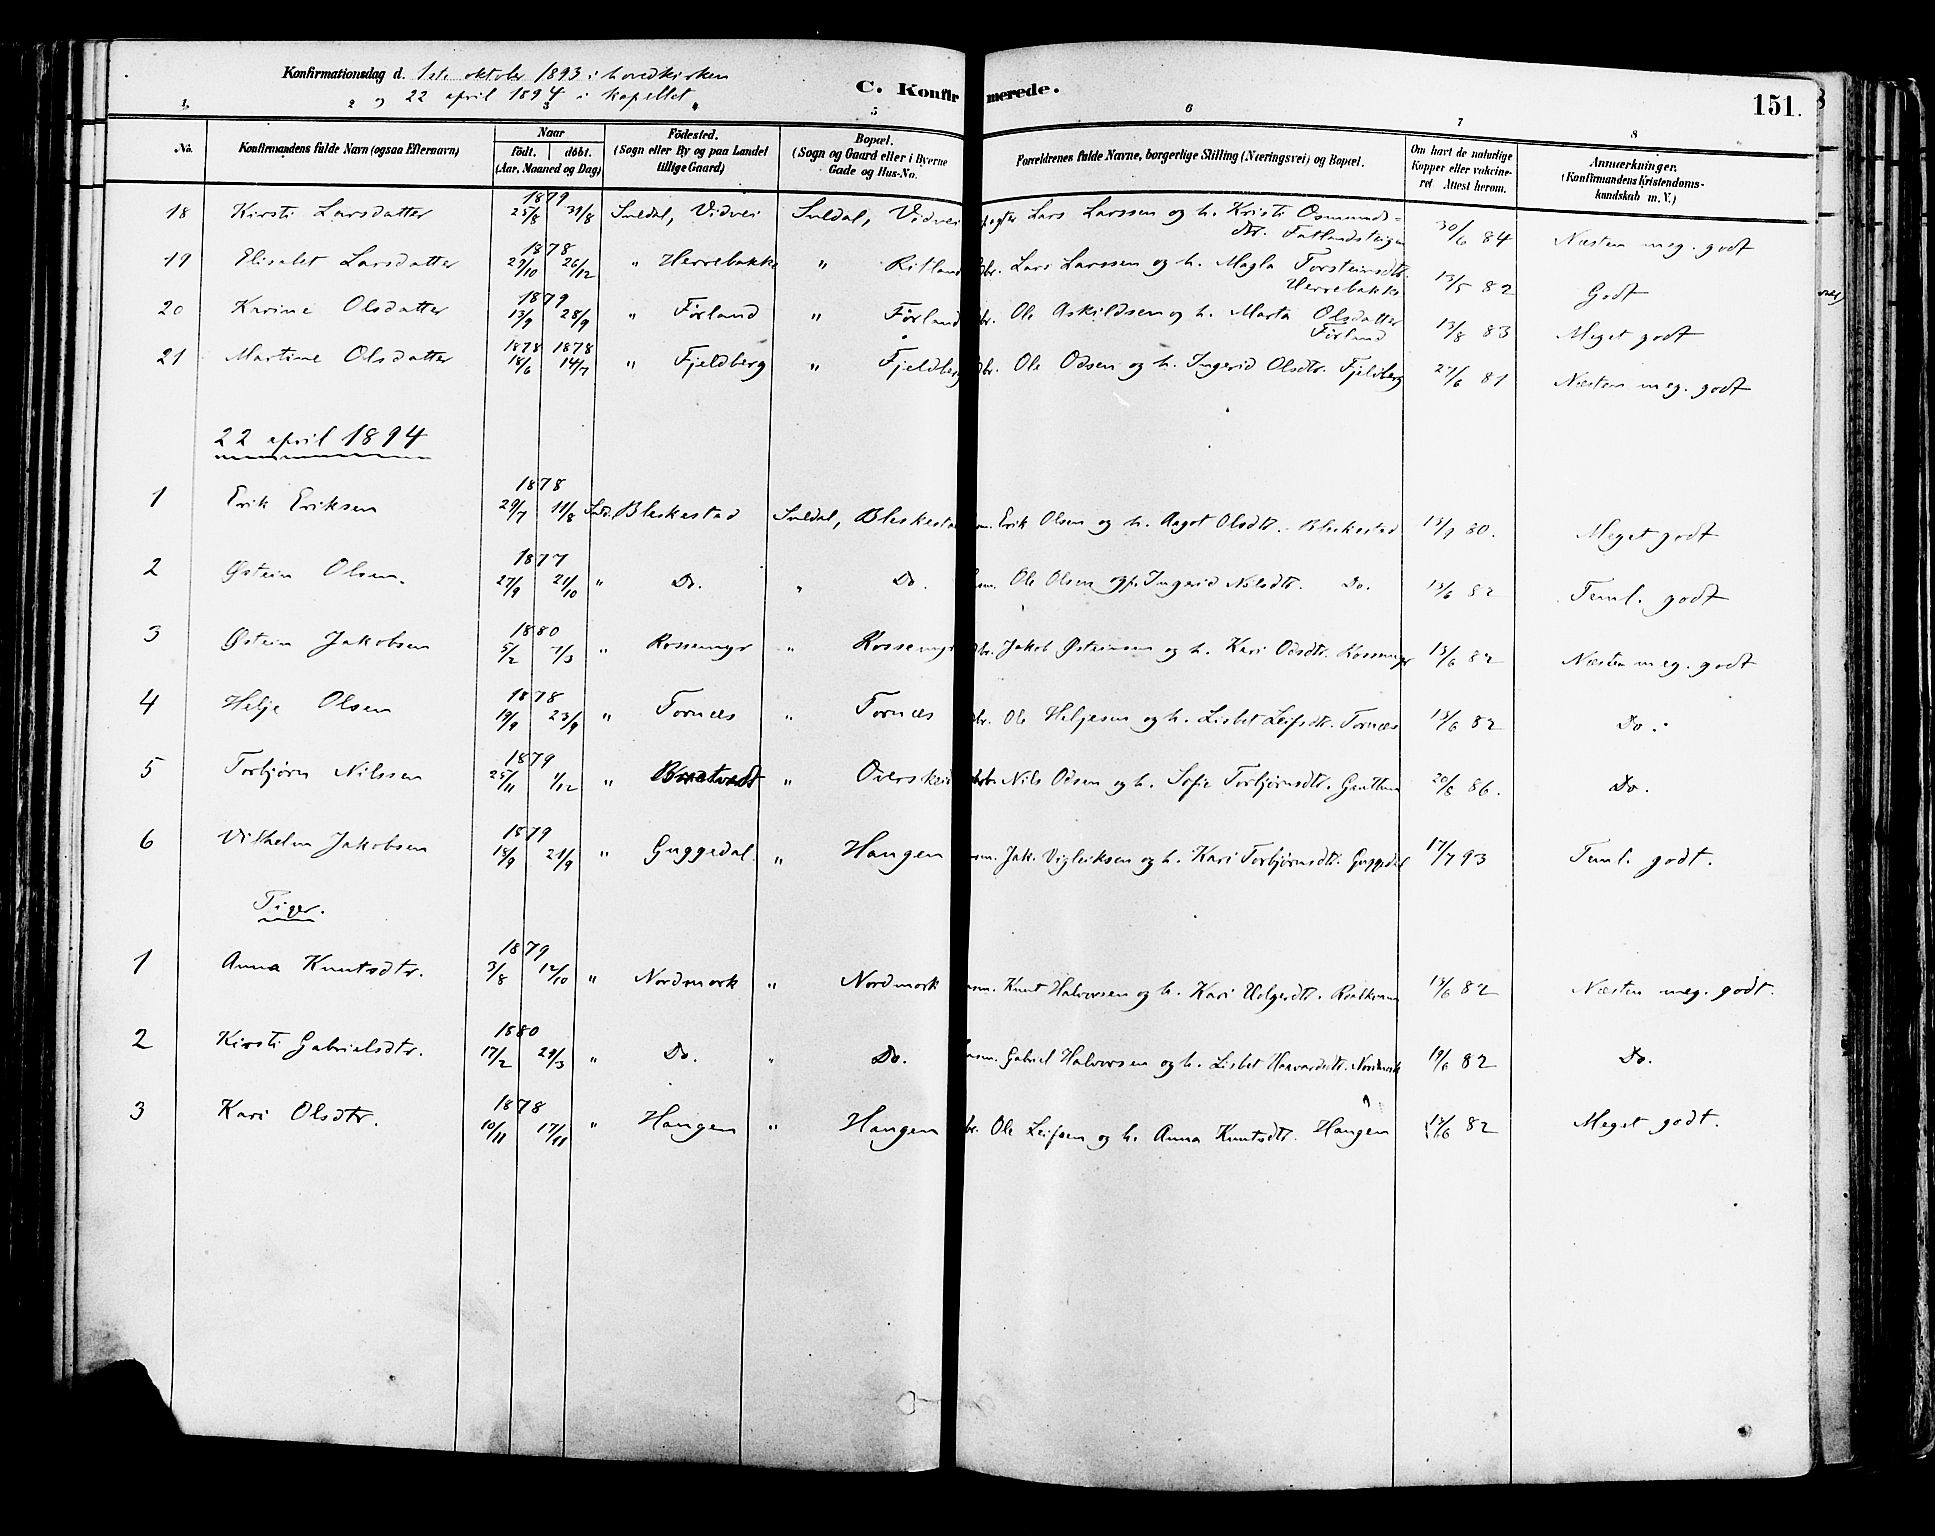 Konfirmationsdag d. 1ste oktober 1893 i hovedkirken
og 22 april 1894 i kapellet
C. Konfirmerede.
151.
1. 2 3 5 6 7 8
No. Konfirmandens fulde Navn (ogsaa Efternavn) Naar födt. döbt. (Aar, Maaned og Dag) Födested. (Sogn eller By og paa Landet tillige Gaard) Bopæl. (Sogn og Gaard eller i Byerne Gade og Hus-No. Forældrenes fulde Navne, borgerlige Stilling (Næringsvei) og Bopæl. Om havt de naturlige Kopper eller vakcineret Attest herom. Anmærkninger. (Konfirmandens Kristendomskundskab m. V.)
18 Kirsti Larsdatter 1879 25/8 31/8 Suldal, Vidvei Suldal, Vidvei Lars Larssen og h. Kristi Osmundsdtr. Fatlandsteigen 30/6 84 Næsten meg. godt
19 Elisabet Larsdatter 1878 29/10 26/12 " Herrebakke " Ritland br. Lars Larssen og h. Magla Torsteinsdtr. Herrebakke 13/5 82 Godt
20 Karine Olsdatter 1879 13/9 28/9 " Førland " Førland br. Ole Askildsen og h. Marta Olsdatter Førland 13/8 83 Meget godt
21 Martine Olsdatter 1878 1878 18/6 14/7 " Fjeldberg " Fjeldberg br. Ole Odsen og h. Ingerid Olsdtr. Fjeldberg 27/6 81 Næsten meg. godt
22 april 1894
1 Erik Eriksen 1878 29/7 11/8 Suld. Bleskestad Suldal, Bleskestad Erik Olsen og h. Aagot Olsdtr. Bleskestad 80. Meget godt
2 Østein Olsen. 1877 27/9 21/10 " Do. " Do. Ole Olsen og Ingerid Nilsdtr. Do. 13/6 82 Teml. godt
3 Østein Jakobsen 1880 5/2 7/3 " Rossemyr " Rossemyr br. Jakob Østeinsen og h. Kari Odsdtr. Rossemyr 13/6 82 Næsten meg. godt
4 Helje Olsen 1878 19/9 23/9 " Tornæs " Tornæs br. Ole Heljesen og h. Lisbet Leifsdtr. Tornæs 13/6 82 Do.
5 Torbjørn Nilssen 1879 25/11 1/12 " Bratvedt " Overskeie Nils Odsen og h. Sofie Torbjørnsdtr. 20/8 86. Do.
6 Vilhelm Jakobsen 1879 18/9 21/9 " Guggedal " Haugen Jak. Vigleiksen og h. Kari Torbjørnsdtr. Guggedal 17/7 93 Teml. godt.
Piger.
1 Anna Knutsdtr. 1879 3/8 12/10 " Nordmork " Nordmork Knut Halvorsen og h. Kari Holgersdtr. Roalkvam 13/6 82 Næsten meg. godt.
2 Kirsti Gabrielsdtr. 1880 17/2 29/3 " Do. " Do. Gabriel Halvorsen og h. Lisbet Haavardsdtr. Nordmork 19/6 82 Do.
3 Kari Olsdtr. 1878 10/11 17/11 " Haugen " Haugen br. Ole Leifsen og h. Anna Knutsdtr. Haugen 13/6 82 Meget godt.